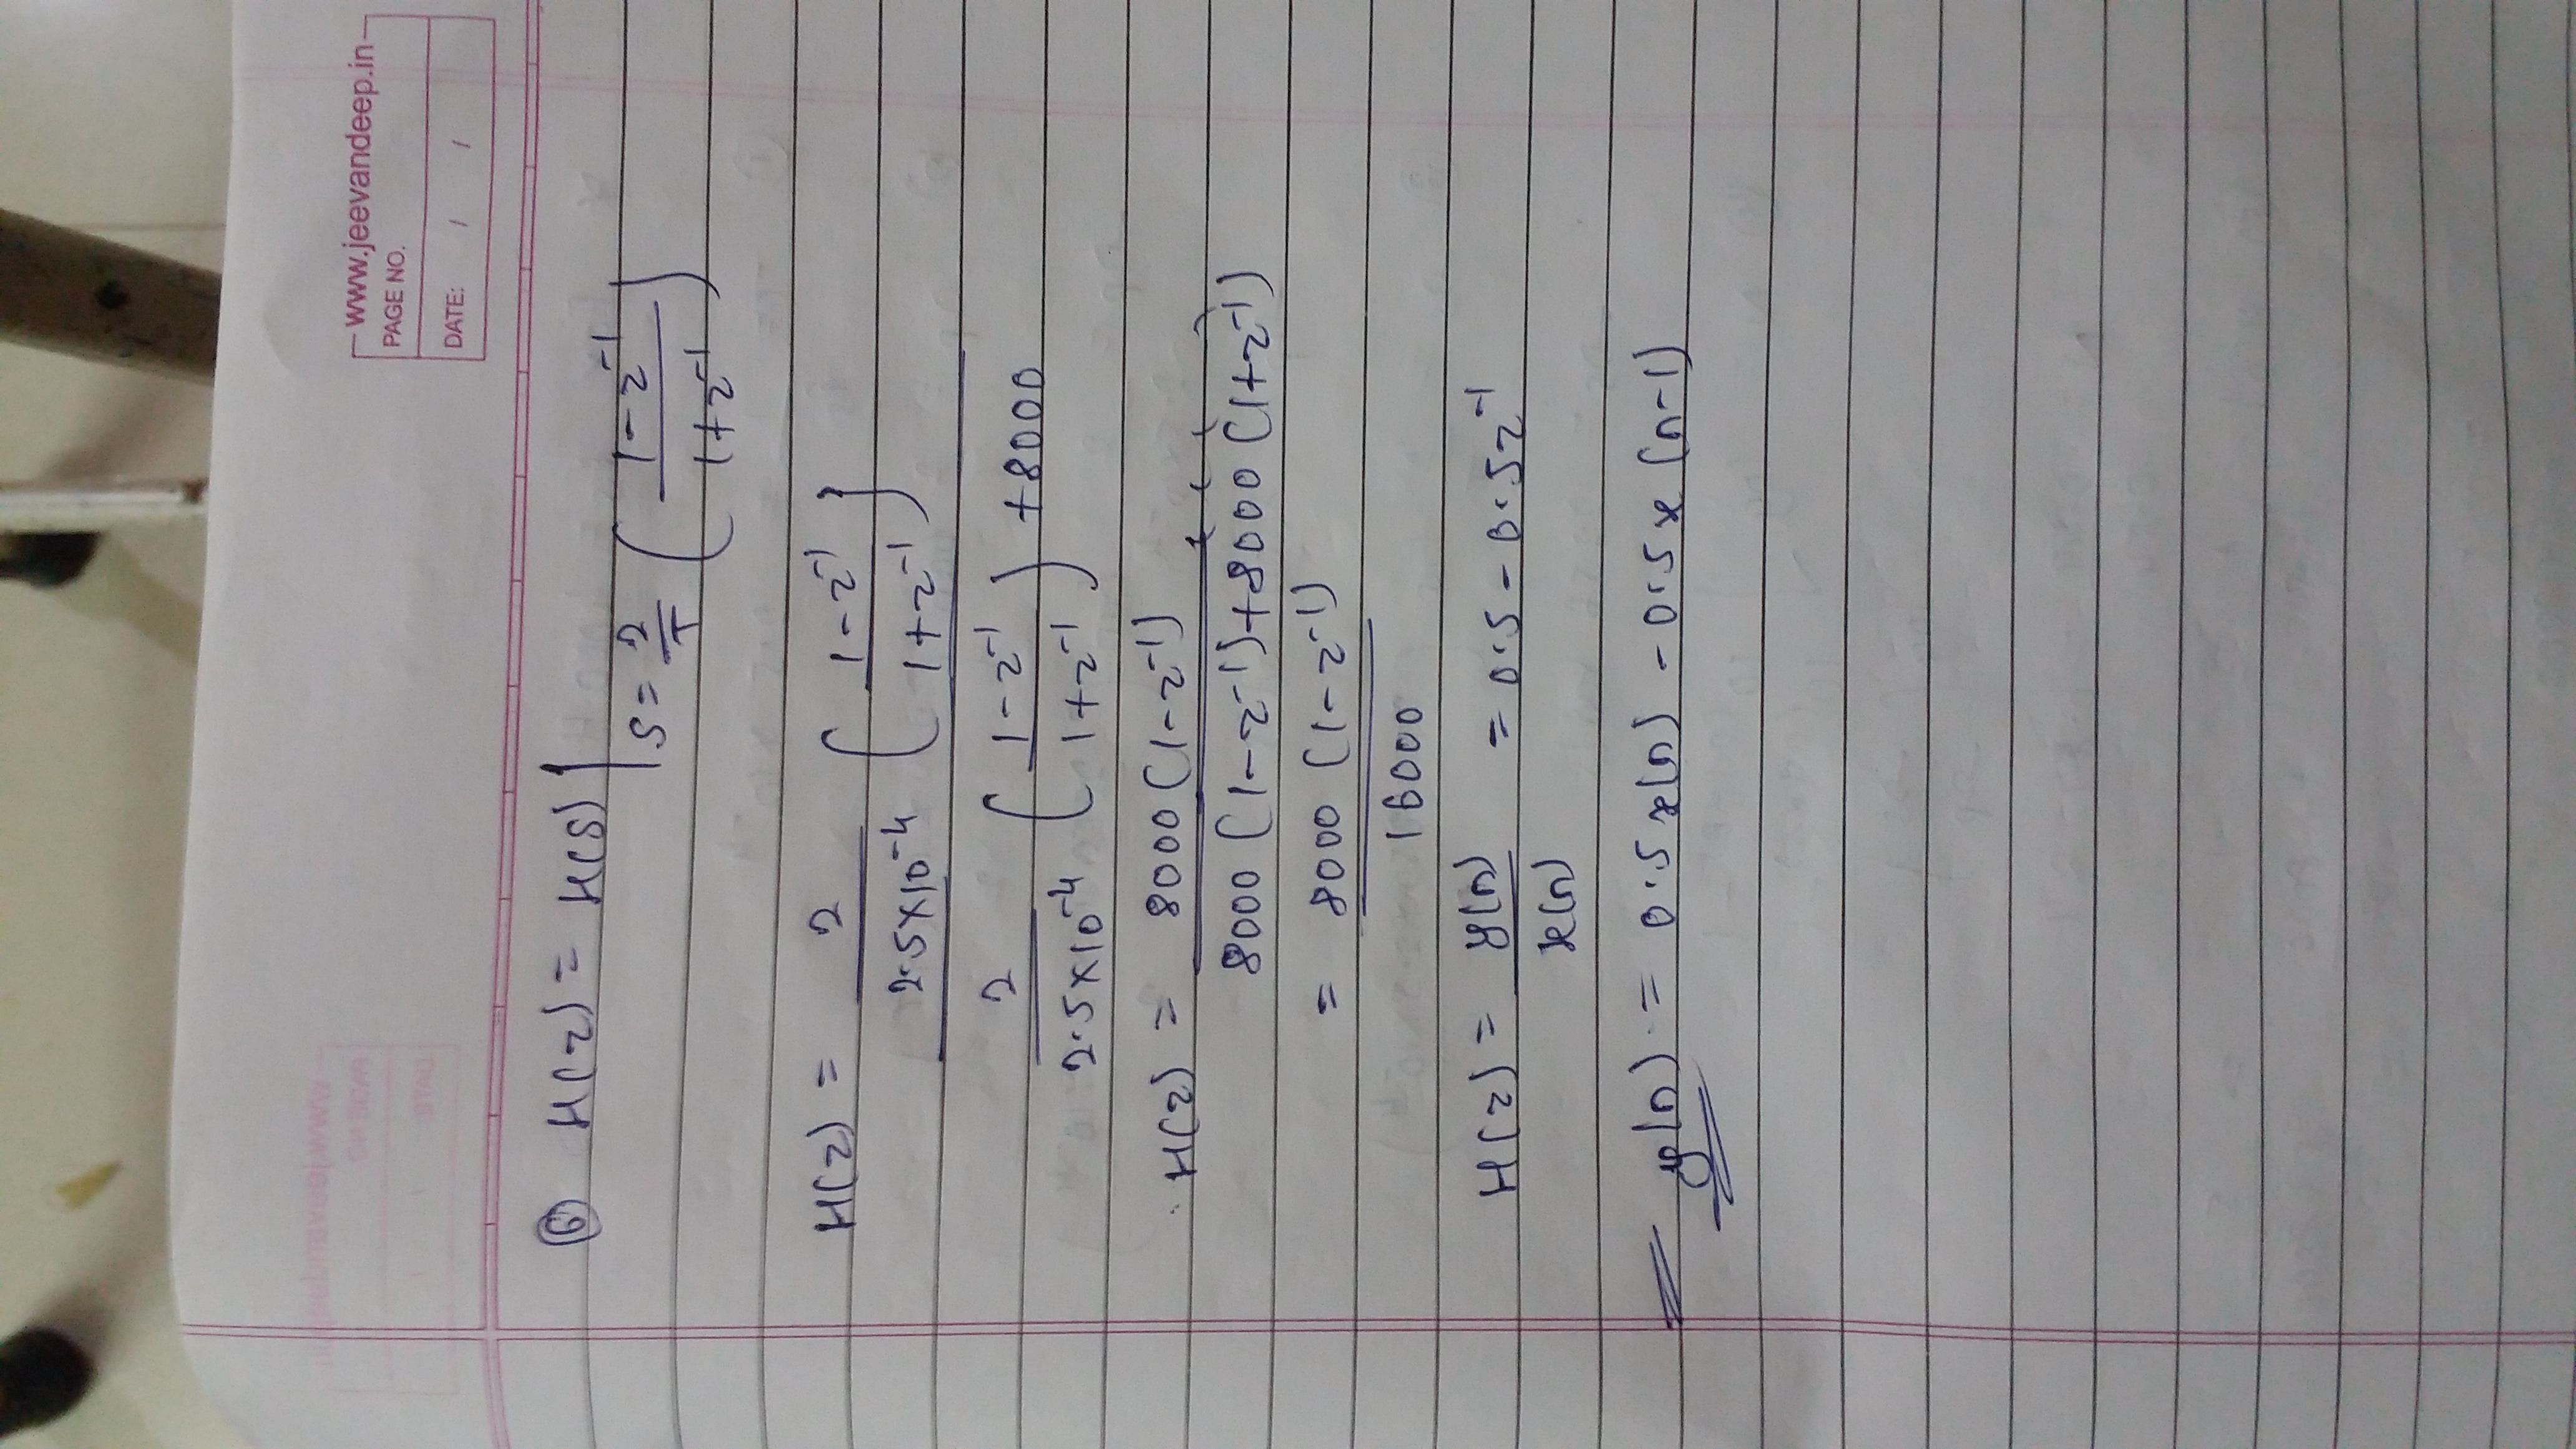 www.jeevandeep.in
PAGE NO.
DATE: / /
⑥ H(z) = H(s) | s = 2/T ( 1 - z⁻¹ / 1 + z⁻¹ )
H(z) = 2 / 2.5 × 10⁻⁴ ( 1 - z⁻¹ / 1 + z⁻¹ )
2 / 2.5 × 10⁻⁴ ( 1 - z⁻¹ / 1 + z⁻¹ ) + 8000
H(z) = 8000 (1 - z⁻¹)
8000 (1 - z⁻¹) + 8000 (1 + z⁻¹)
= 8000 (1 - z⁻¹)
16000
H(z) = y(n) / x(n) = 0.5 - 0.5z⁻¹
y(n) = 0.5 x(n) - 0.5 x (n-1)